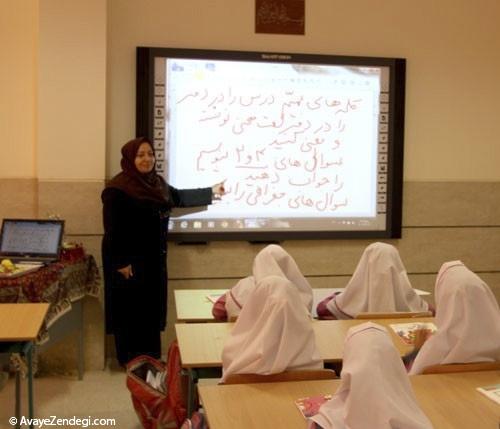 کلمه‌های مهم درس را در دفتر
را در دفتر لغت معنی نوشته
و معنی کنید
سوال های ۲ و ۳
را جواب دهید
سوال های جغرافی را
© AvayeZendegi.com